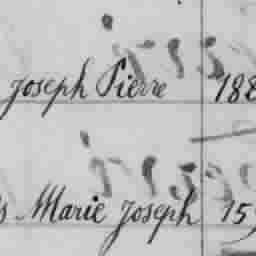 Joseph Pierre 188
Marie Joseph 15